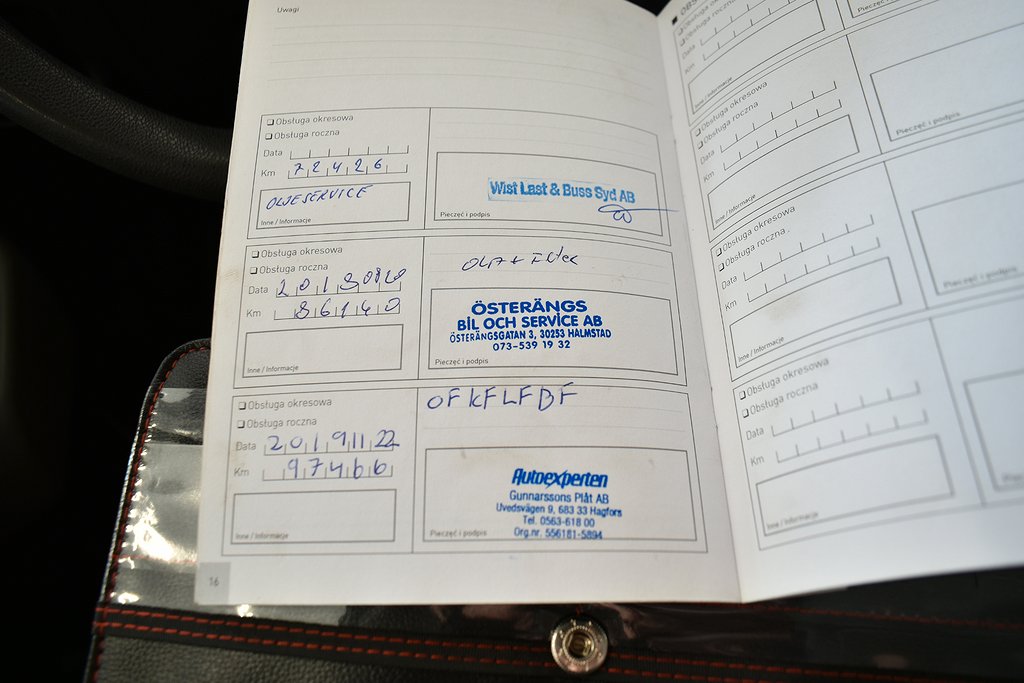 Uwagi
Obsługa okresowa
Obsługa roczna
Data
Km 72426
OLJESERVICE
Inne / Informacje
Wist Last & Buss Syd AB
Pieczęć i podpis
Obsługa okresowa
Obsługa roczna
Data
Km 86140
Inne / Informacje
ÖSTERÄNGS
BIL OCH SERVICE AB
ÖSTERÄNGSGATAN 3, 30253 HALMSTAD
073-539 19 32
Pieczęć i podpis
Obsługa okresowa
Obsługa roczna
Data 20191122
Km 97466
Inne / Informacje
OFKFLFBF
Autoexperten
Gunnarssons Plåt AB
Uvedsvägen 9, 683 33 Hagfors
Tel. 0563-618 00
Org.nr. 556181-5894
Pieczęć i podpis
16
Obsługa okresowa
Obsługa roczna
Data
Km
Inne / Informacje
Pieczęć i podpis
Obsługa okresowa
Obsługa roczna
Data
Km
Inne / Informacje
Pieczęć i podpis
Obsługa okresowa
Obsługa roczna
Data
Km
Inne / Informacje
Pieczęć i podpis
Obsługa okresowa
Obsługa roczna
Data
Km
Inne / Informacje